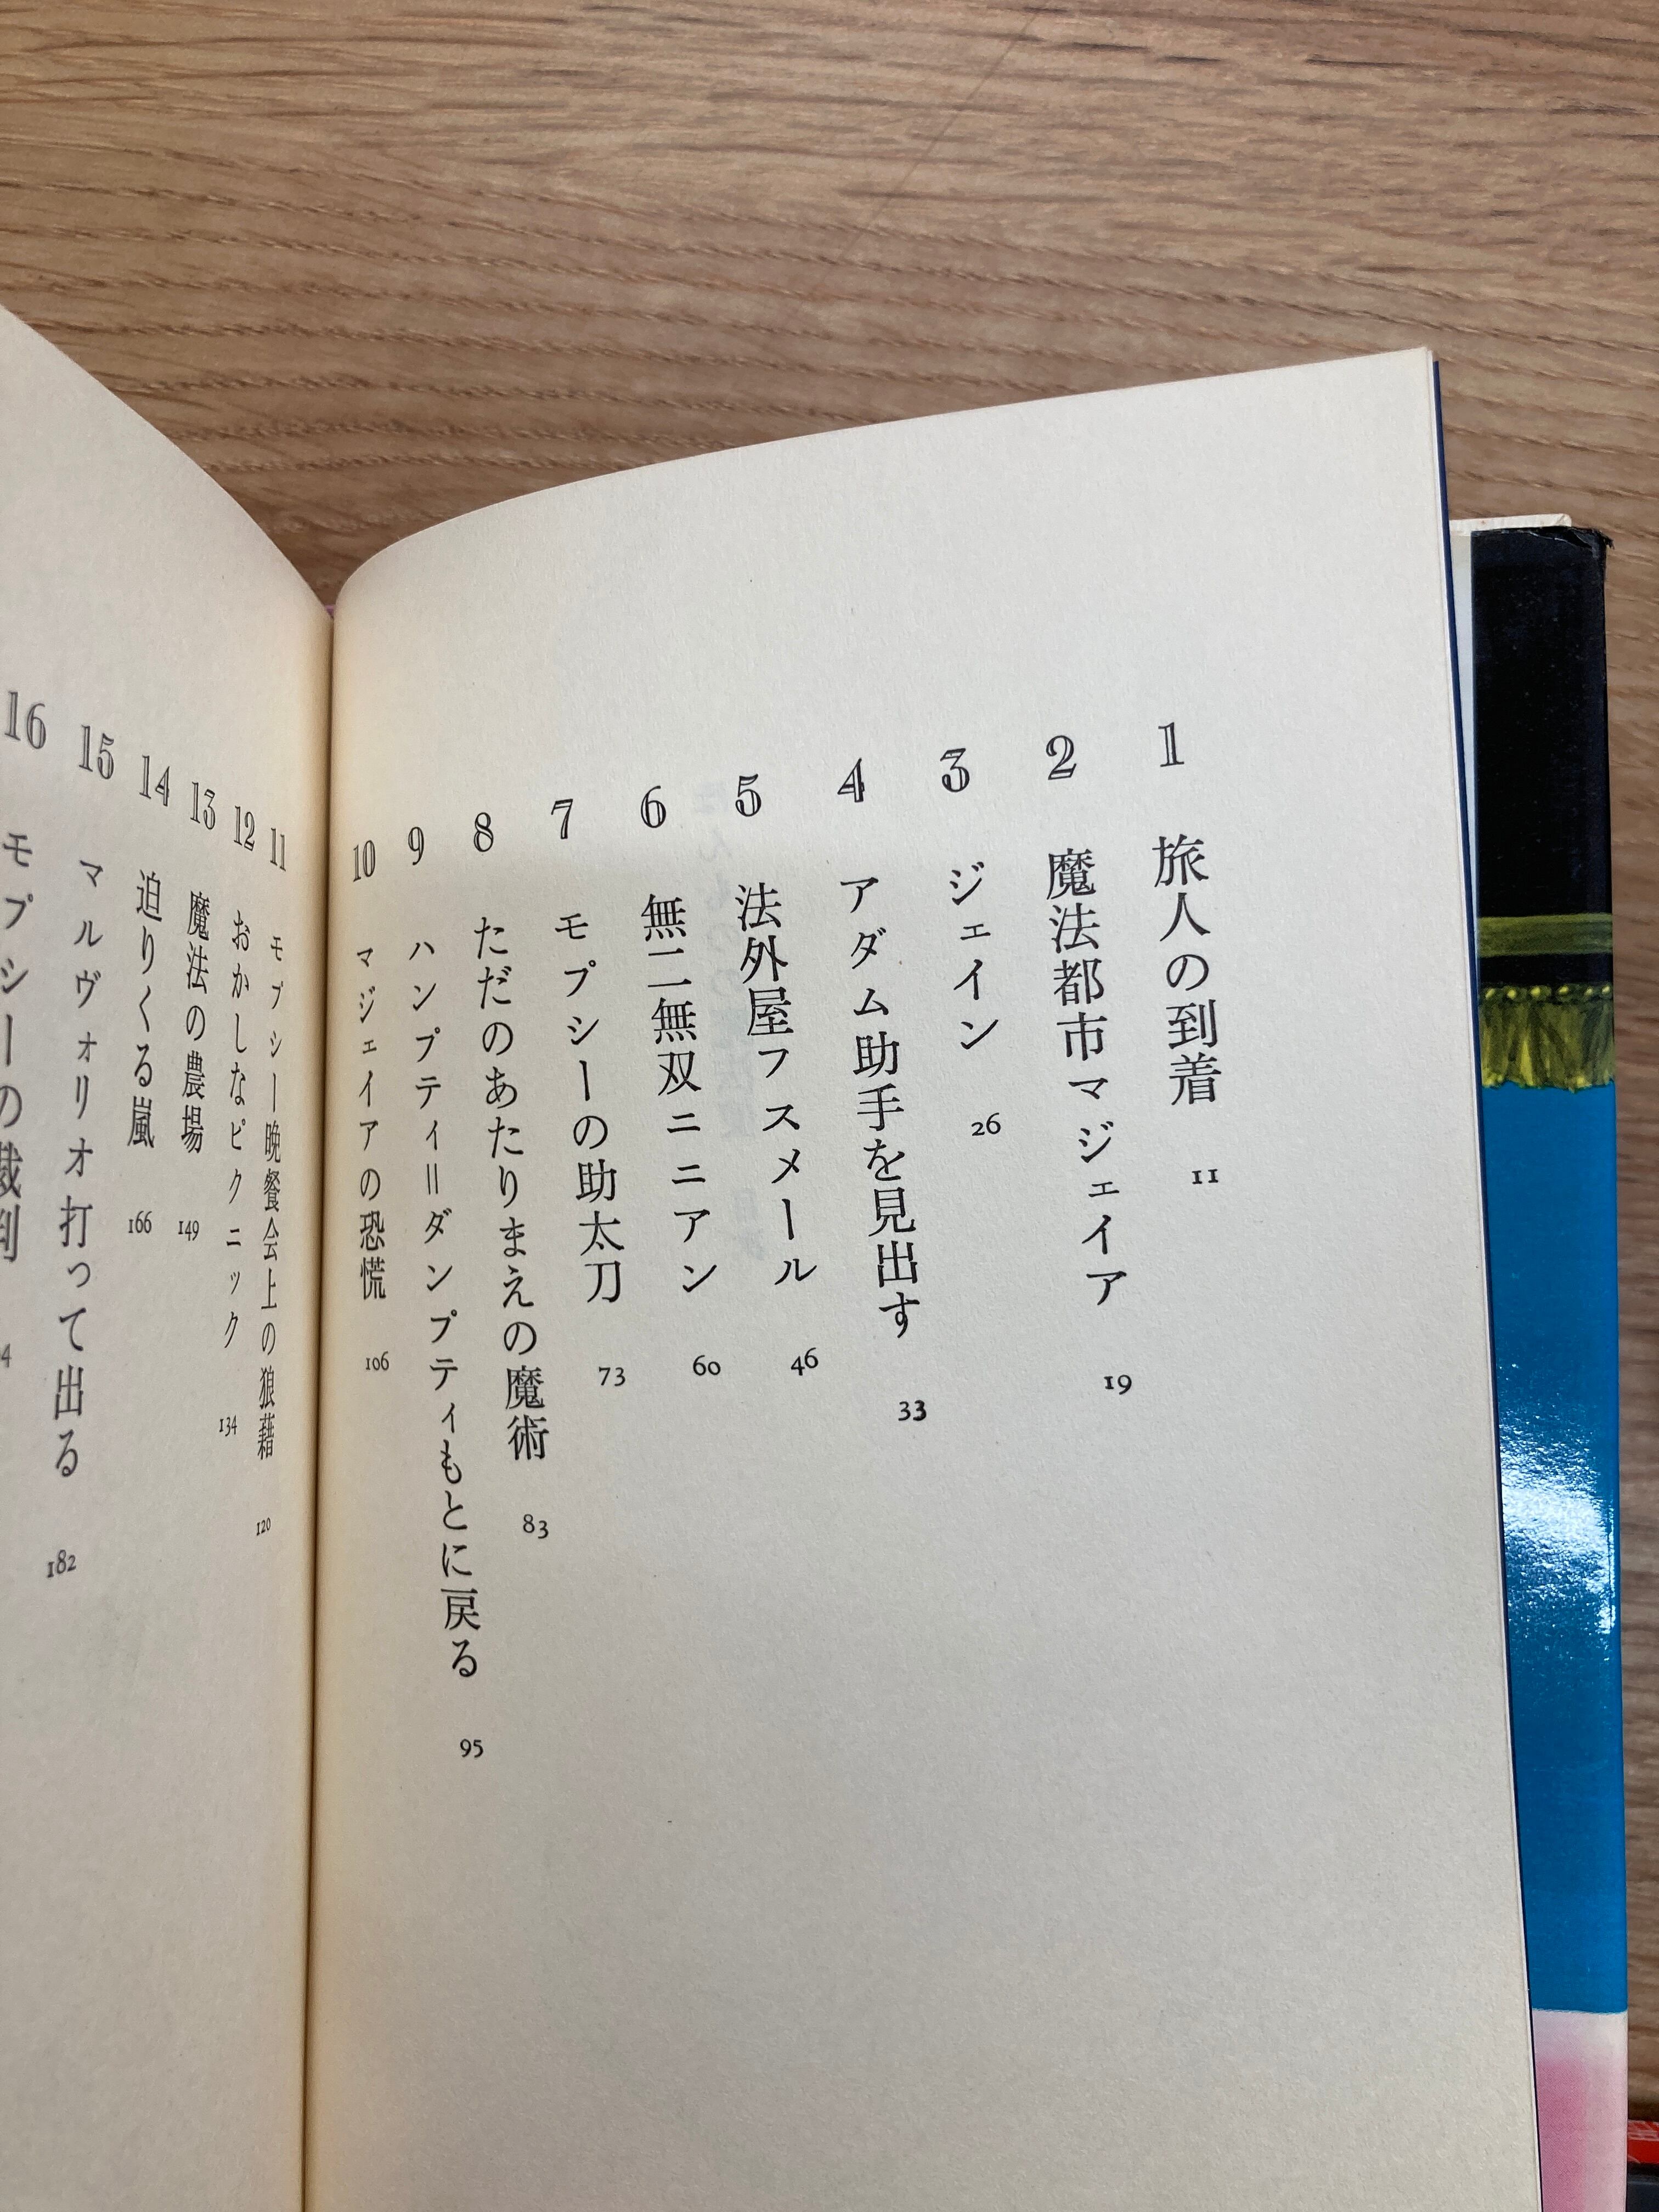 1 旅人の到着 11
2 魔法都市マジェイア 19
3 ジェイン 26
4 アダム助手を見出す 33
5 法外屋フスメール 46
6 無二無双ニニアン 60
7 モプシーの助太刀 73
8 ただのあたりまえの魔術 83
9 ハンプティ=ダンプティもとに戻る 95
10 マジェイアの恐慌 106
11 モプシー晩餐会上の狼藉 120
12 おかしなピクニック 134
13 魔法の農場 149
14 迫りくる嵐 166
15 マルヴォリオ打って出る 182
16 モプシーの裁判